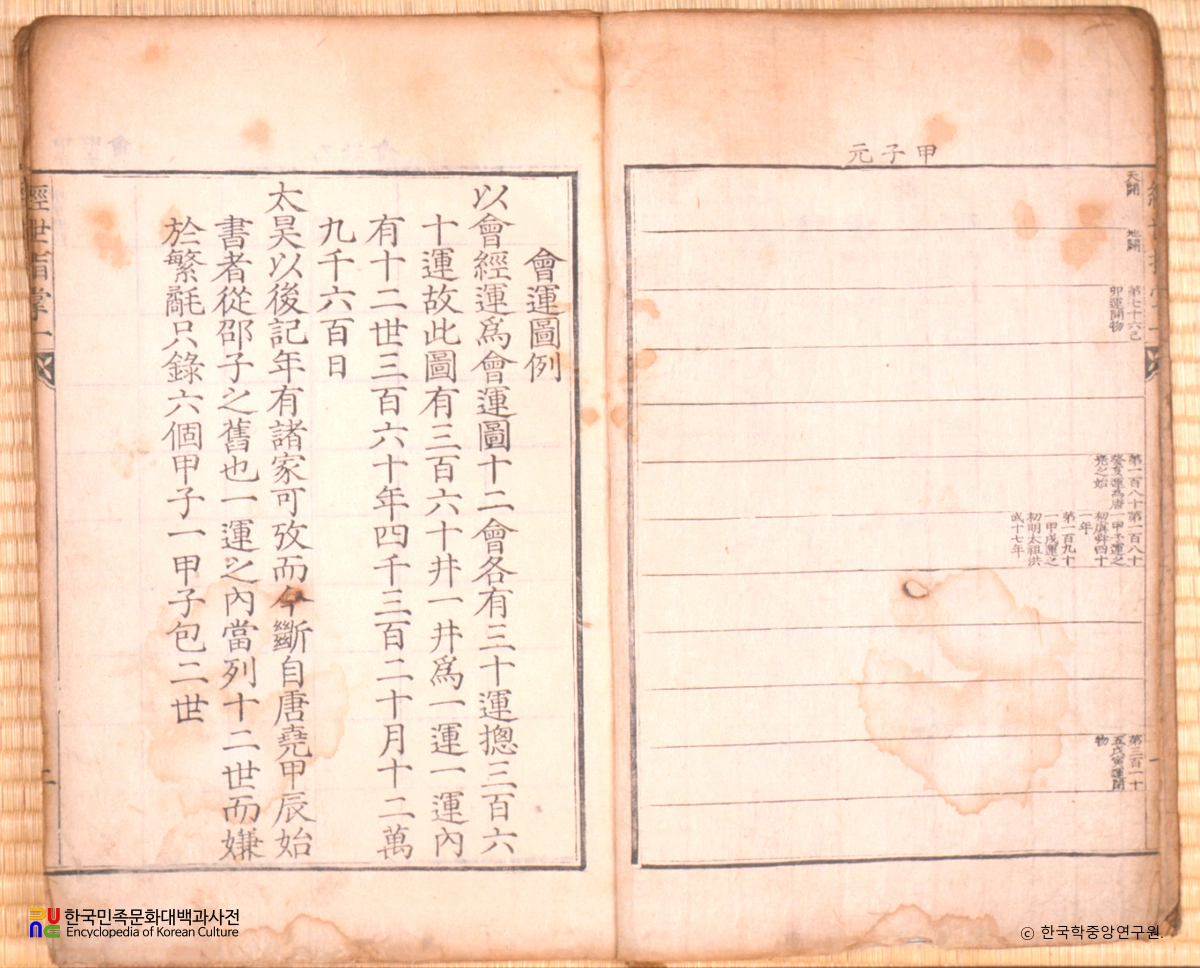 甲子元
天開
地闢
第七十六己
卯運開物
第一百八十
癸亥運爲唐
堯之始
第一百八十
一甲子運之
初虞舜四十
一年
第一百九十
一甲戌運之
初明太祖洪
武十七年
第三百一十
五戊寅運閉
物
會運圖例
以會經運爲會運圖十二會各有三十運摠三百六
十運故此圖有三百六十井一井爲一運一運內
有十二世三百六十年四千三百二十月十二萬
九千六百日
太昊以後記年有諸家可攷而今斷自唐堯甲辰始
書者從邵子之舊也一運之內當列十二世而嫌
於繁氄只錄六個甲子一甲子包二世
經世指掌一
二
한국민족문화대백과사전
Encyclopedia of Korean Culture
ⓒ 한국학중앙연구원.